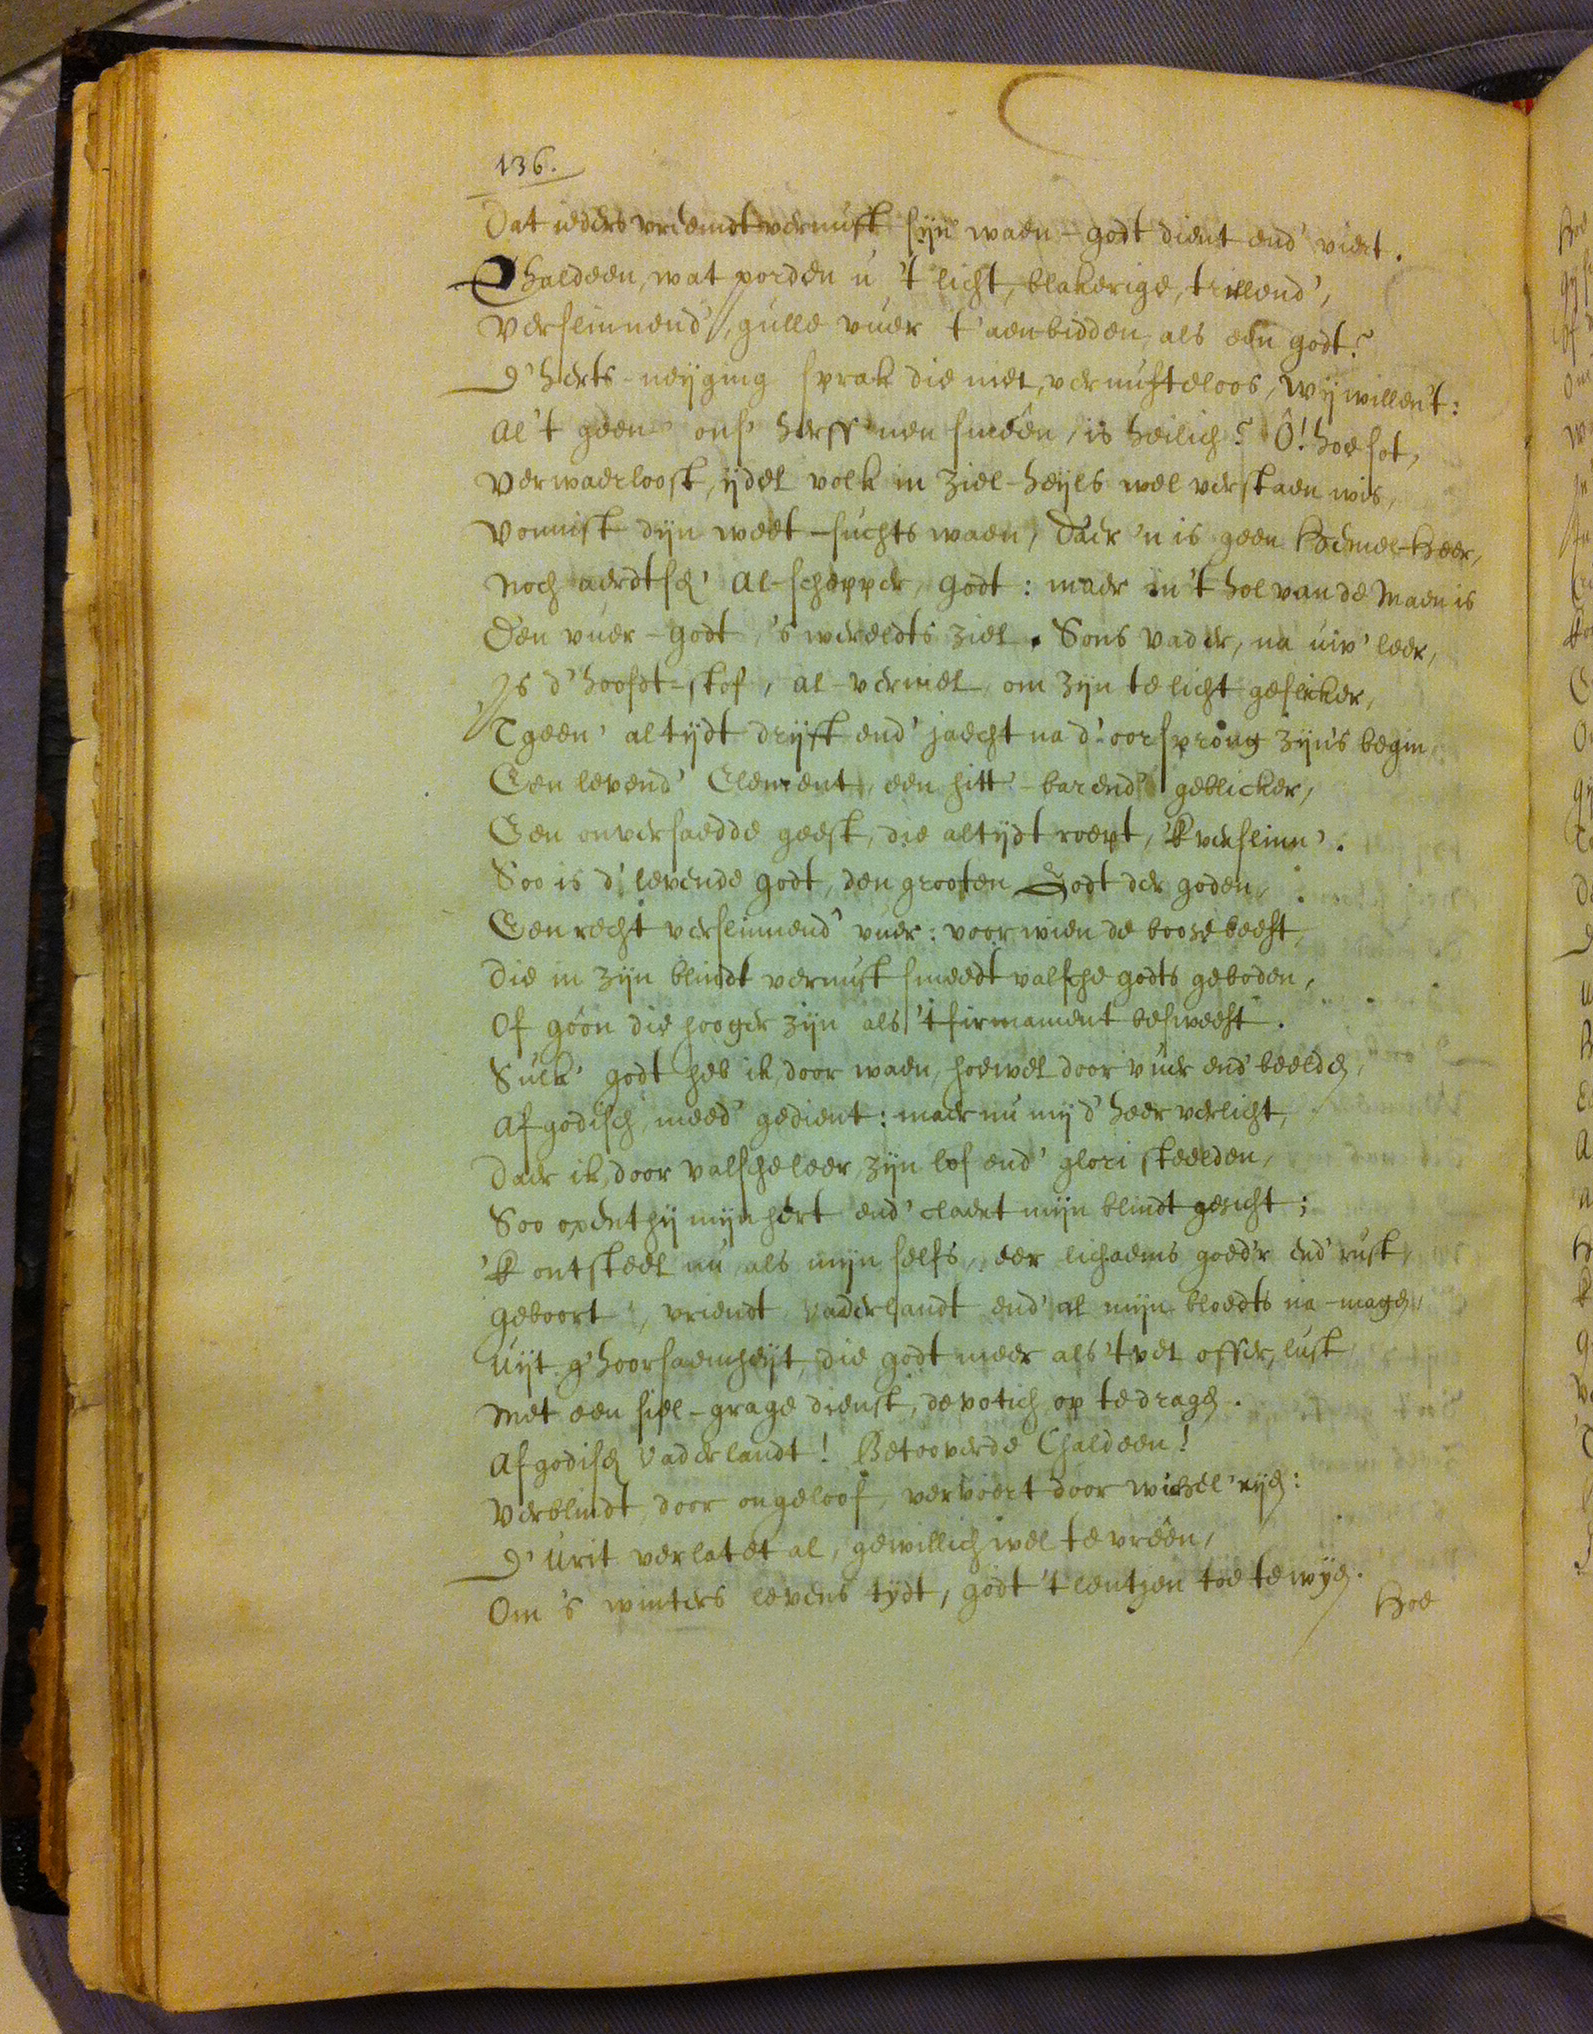 136.
Dat ieders vreemdt vernuft sijn waen-godt dient end' viert.
Chaldeen, wat porden u 't licht, blakerige, trillend',
Verslinnend', gulle vuer t'aenbidden als een godt?
D'herts-neyging sprak die niet, vernufteloos, Wij willen't:
Al't geen' ons' herss'nen smeên, is heilich? Ô! hoe sot,
Verwaerloost, ijdel volk in Ziel-heyls wel verstaen wis,
Vonnist dyn weet-suchts waen, Daer 'n is geen Hemel-Heer,
Noch aerdtsch' Al-schepper, Godt: maer in't hol van de Maen is
Den vuer-Godt, 's werelds Ziel. Sons Vader, na uw' leer,
Is d'hoofdt-stof, al-verniel om Zijn te licht geflicker,
'T geen' altijdt drijft end' jaecht na d'oorsprong Zijn's begin
Een levend' Element, een hitt'-barend' geblicker,
Een onversaedde geest, die altijdt roept, 'k verslinn'.
Soo is d' levende godt, den grooten Godt der goden,
Een recht verslinnend' vuer: voor wien de boose beeft,
Die in Zijn blindt vernuft smeedt valsche godts geboden,
Of goôn die hooger Zijn als 't firmament besweeft.
Sulk' godt heb ik, door waen, hoewel door vuer end' beelden,
Afgodisch, meed' gedient: maer nu mij d'heer verlicht,
Daer ik, door valsche leer, Zijn lof end' glori steelden,
Soo opent hij mijn hert end' claert mijn blindt gesicht;
'K ontsteel nu als mijn selfs, eer lichaems goed'r end' rust,
Geboort', vriendt, vaderlandt end' al mijn bloedts na-magen,
Uijt g'hoorsaemheijt, die godt meer als 't vet offer, lust
Met een siel-grage dienst, devotich op te dragen.
Afgodisch Vaderlandt! Betooverde Chaldeen!
Verblindt, door ongeloof, vervoert door wichel'rijen:
D'Urit verlatet al, gewillich wel te vreên,
Om 's winters levens tijdt, godt 't lentjen toe te wijen.
Hoe